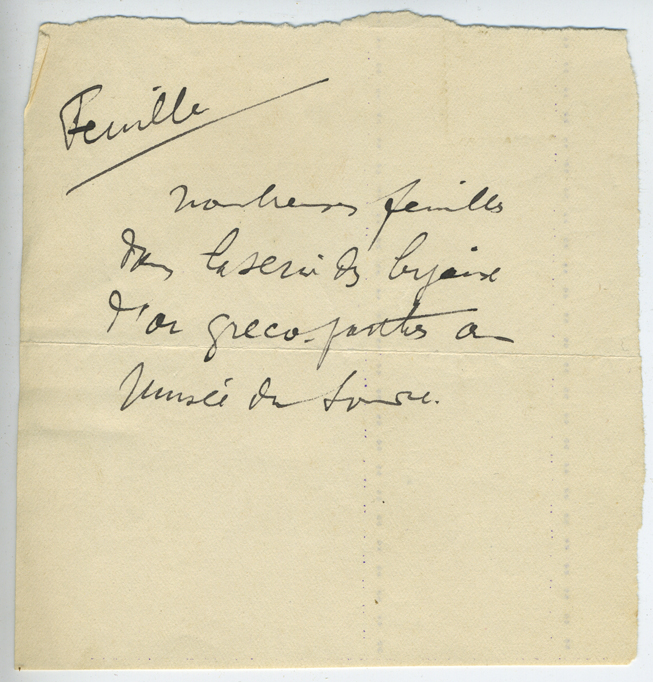 Feuille
nombreuses feuilles
dans la serie des bijoux
d'or greco- au
Musée du Louvre.